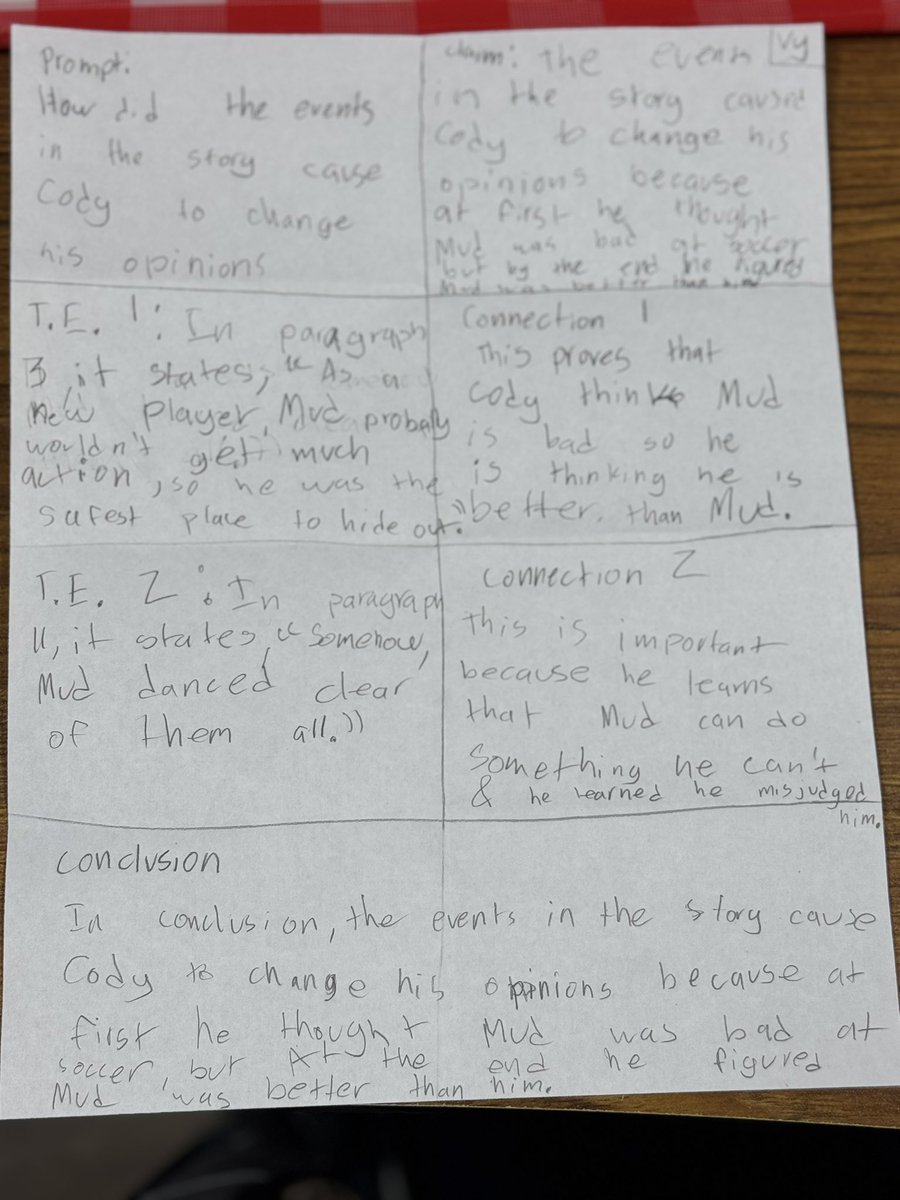 Prompt.
How did the events
in the story cause
Cody to change
his opinions
claim: the events
Vy
in the story caused
Cody to change his
opinions because
at first he thought
Mud was bad at soccer
but by the end he figured
Mud was better than him
T.E. 1: In paragraph
3, it states, "As a
new player, Mud probaly
wouldn't get much
action, so he was the
safest place to hide out."
Connection 1
This proves that
Cody thinks Mud
is bad so he
is thinking he is
better than Mud.
T.E. 2: In paragraph
11, it states, "Somehow,
Mud danced clear
of them all."
Connection 2
this is important
because he learns
that Mud can do
Something he can't
& he learned he misjudged
him.
Conclusion
In conclusion, the events in the story cause
Cody to change his opinions because at
first he thought Mud was bad at
soccer, but At the end he figured
Mud was better than him.